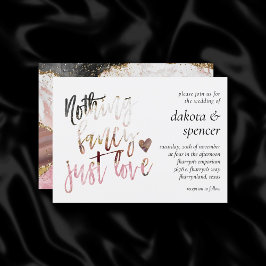 Nothing
fancy
just love
please join us for
the wedding of
dakota &
spencer
saturday, 20th of november
at four in the afternoon
fharryn's emporium
fharrynland, texas
reception to follow